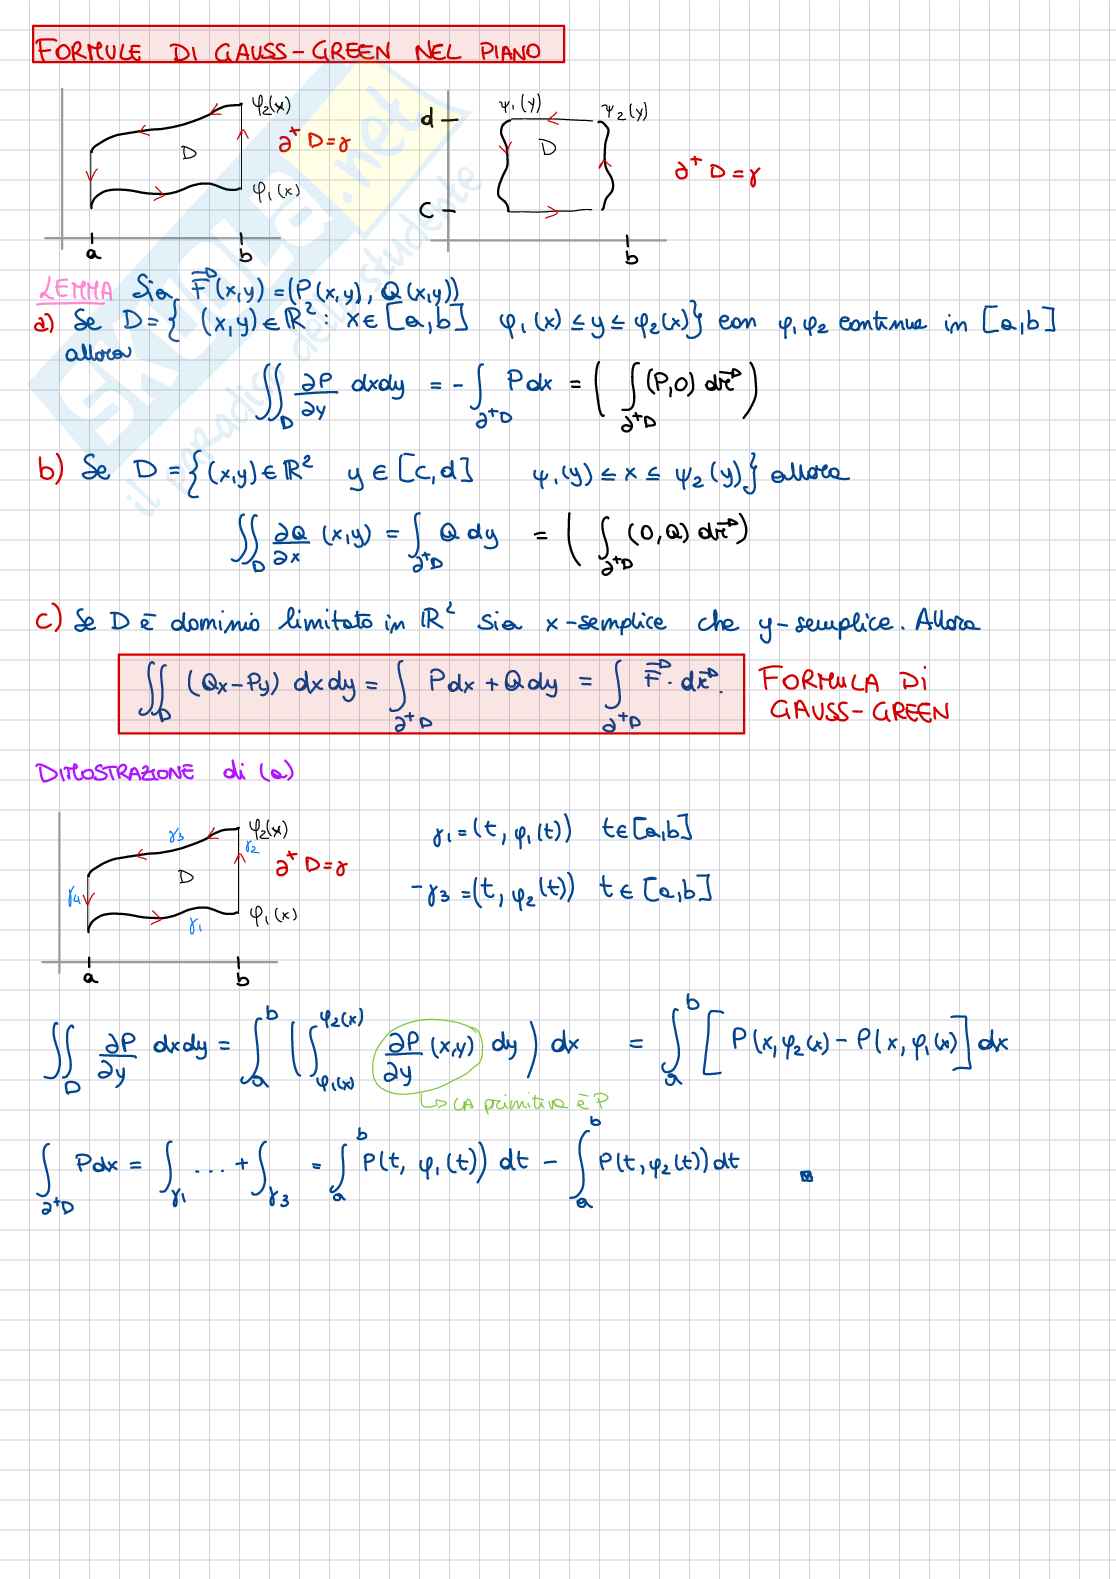 FORMULE DI GAUSS-GREEN NEL PIANO
φ₂(x)
D
∂⁺D=γ
φ₁(x)
a b
ψ₁(y) ψ₂(y)
d
D
∂⁺D=γ
c
b
SKUOLA.net
il paradiso dello studente
LEMMA Sia F⃗(x,y) = (P(x,y), Q(x,y))
a) Se D={ (x,y)∈ℝ²: x∈[a,b] φ₁(x) ≤ y ≤ φ₂(x)} con φ₁φ₂ continue in [a,b]
allora
∬_D ∂P/∂y dxdy = - ∫_∂⁺D Pdx = ( ∫_∂⁺D (P,0) dr⃗ )
b) Se D={(x,y)∈ℝ² y∈[c,d] ψ₁(y) ≤ x ≤ ψ₂(y)} allora
∬_D ∂Q/∂x (x,y) = ∫_∂⁺D Q dy = ( ∫_∂⁺D (0,Q) dr⃗ )
c) Se D è dominio limitato in ℝ² sia x-semplice che y-semplice. Allora
∬_D (Qx-Py) dxdy = ∫_∂⁺D Pdx + Qdy = ∫_∂⁺D F⃗ · dr⃗.
FORMULA DI
GAUSS-GREEN
DIMOSTRAZIONE di (a)
γ₃
φ₂(x)
γ₂
D
∂⁺D=γ
γ₄
φ₁(x)
γ₁
a b
γ₁=(t, φ₁(t)) t∈[a,b]
-γ₃=(t, φ₂(t)) t∈[a,b]
∬_D ∂P/∂y dxdy = ∫_a^b ( ∫_φ₁(x)^φ₂(x) ∂P/∂y (x,y) dy ) dx = ∫_a^b [ P(x,φ₂(x) - P(x,φ₁(x) ] dx
↳ LA primitiva è P
∫_∂⁺D Pdx = ∫_γ₁ ... + ∫_γ₃ = ∫_a^b P(t, φ₁(t)) dt - ∫_a^b P(t,φ₂(t))dt